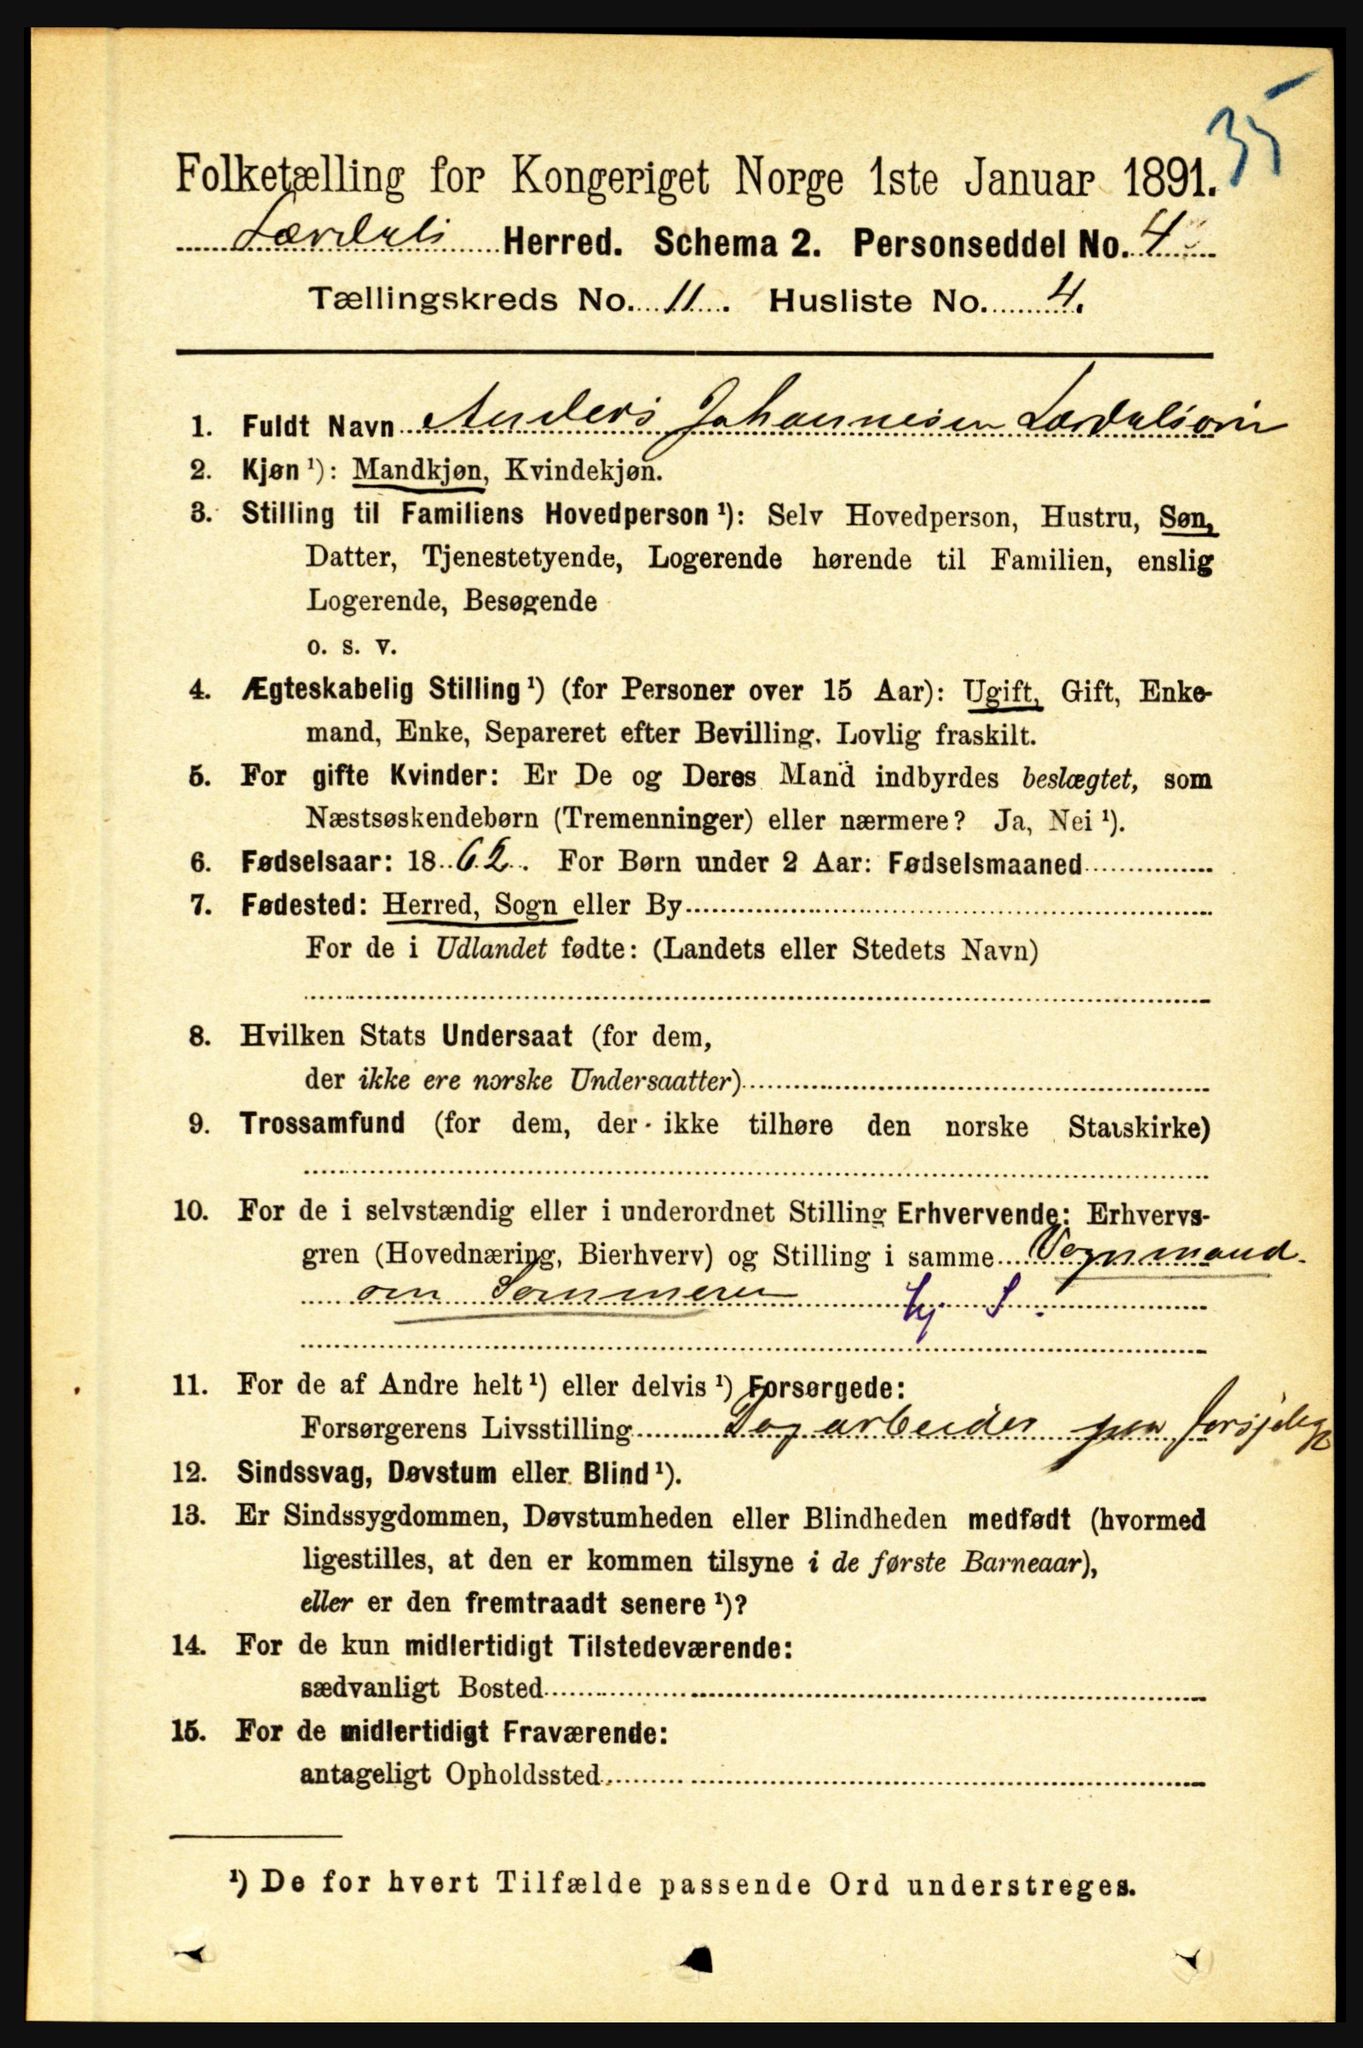 35
Folketælling for Kongeriget Norge 1ste Januar 1891.
Lærdals Herred. Schema 2. Personseddel No. 4
Tællingskreds No. 11. Husliste No. 4.
1. Fuldt Navn Anders Johannesen Lærdalsøiri
2. Kjøn ¹): Mandkjøn, Kvindekjøn.
3. Stilling til Familiens Hovedperson ¹): Selv Hovedperson, Hustru, Søn,
Datter, Tjenestetyende, Logerende hørende til Familien, enslig
Logerende, Besøgende
o. s. v.
4. Ægteskabelig Stilling ¹) (for Personer over 15 Aar): Ugift, Gift, Enke-
mand, Enke, Separeret efter Bevilling. Lovlig fraskilt.
5. For gifte Kvinder: Er De og Deres Mand indbyrdes beslægtet, som
Næstsøskendebørn (Tremenninger) eller nærmere? Ja, Nei ¹).
6. Fødselsaar: 1862. For Børn under 2 Aar: Fødselsmaaned
7. Fødested: Herred, Sogn eller By
For de i Udlandet fødte: (Landets eller Stedets Navn)
8. Hvilken Stats Undersaat (for dem,
der ikke ere norske Undersaatter)
9. Trossamfund (for dem, der ikke tilhøre den norske Statskirke)
10. For de i selvstændig eller i underordnet Stilling Erhvervende: Erhvervs-
gren (Hovednæring, Bierhverv) og Stilling i samme Vognmand
om Sommeren
11. For de af Andre helt ¹) eller delvis ¹) Forsørgede:
Forsørgerens Livsstilling Dagarbeider paa
12. Sindssvag, Døvstum eller Blind ¹).
13. Er Sindssygdommen, Døvstumheden eller Blindheden medfødt (hvormed
ligestilles, at den er kommen tilsyne i de første Barneaar),
eller er den fremtraadt senere ¹)?
14. For de kun midlertidigt Tilstedeværende:
sædvanligt Bosted
15. For de midlertidigt Fraværende:
antageligt Opholdssted
¹) De for hvert Tilfælde passende Ord understreges.